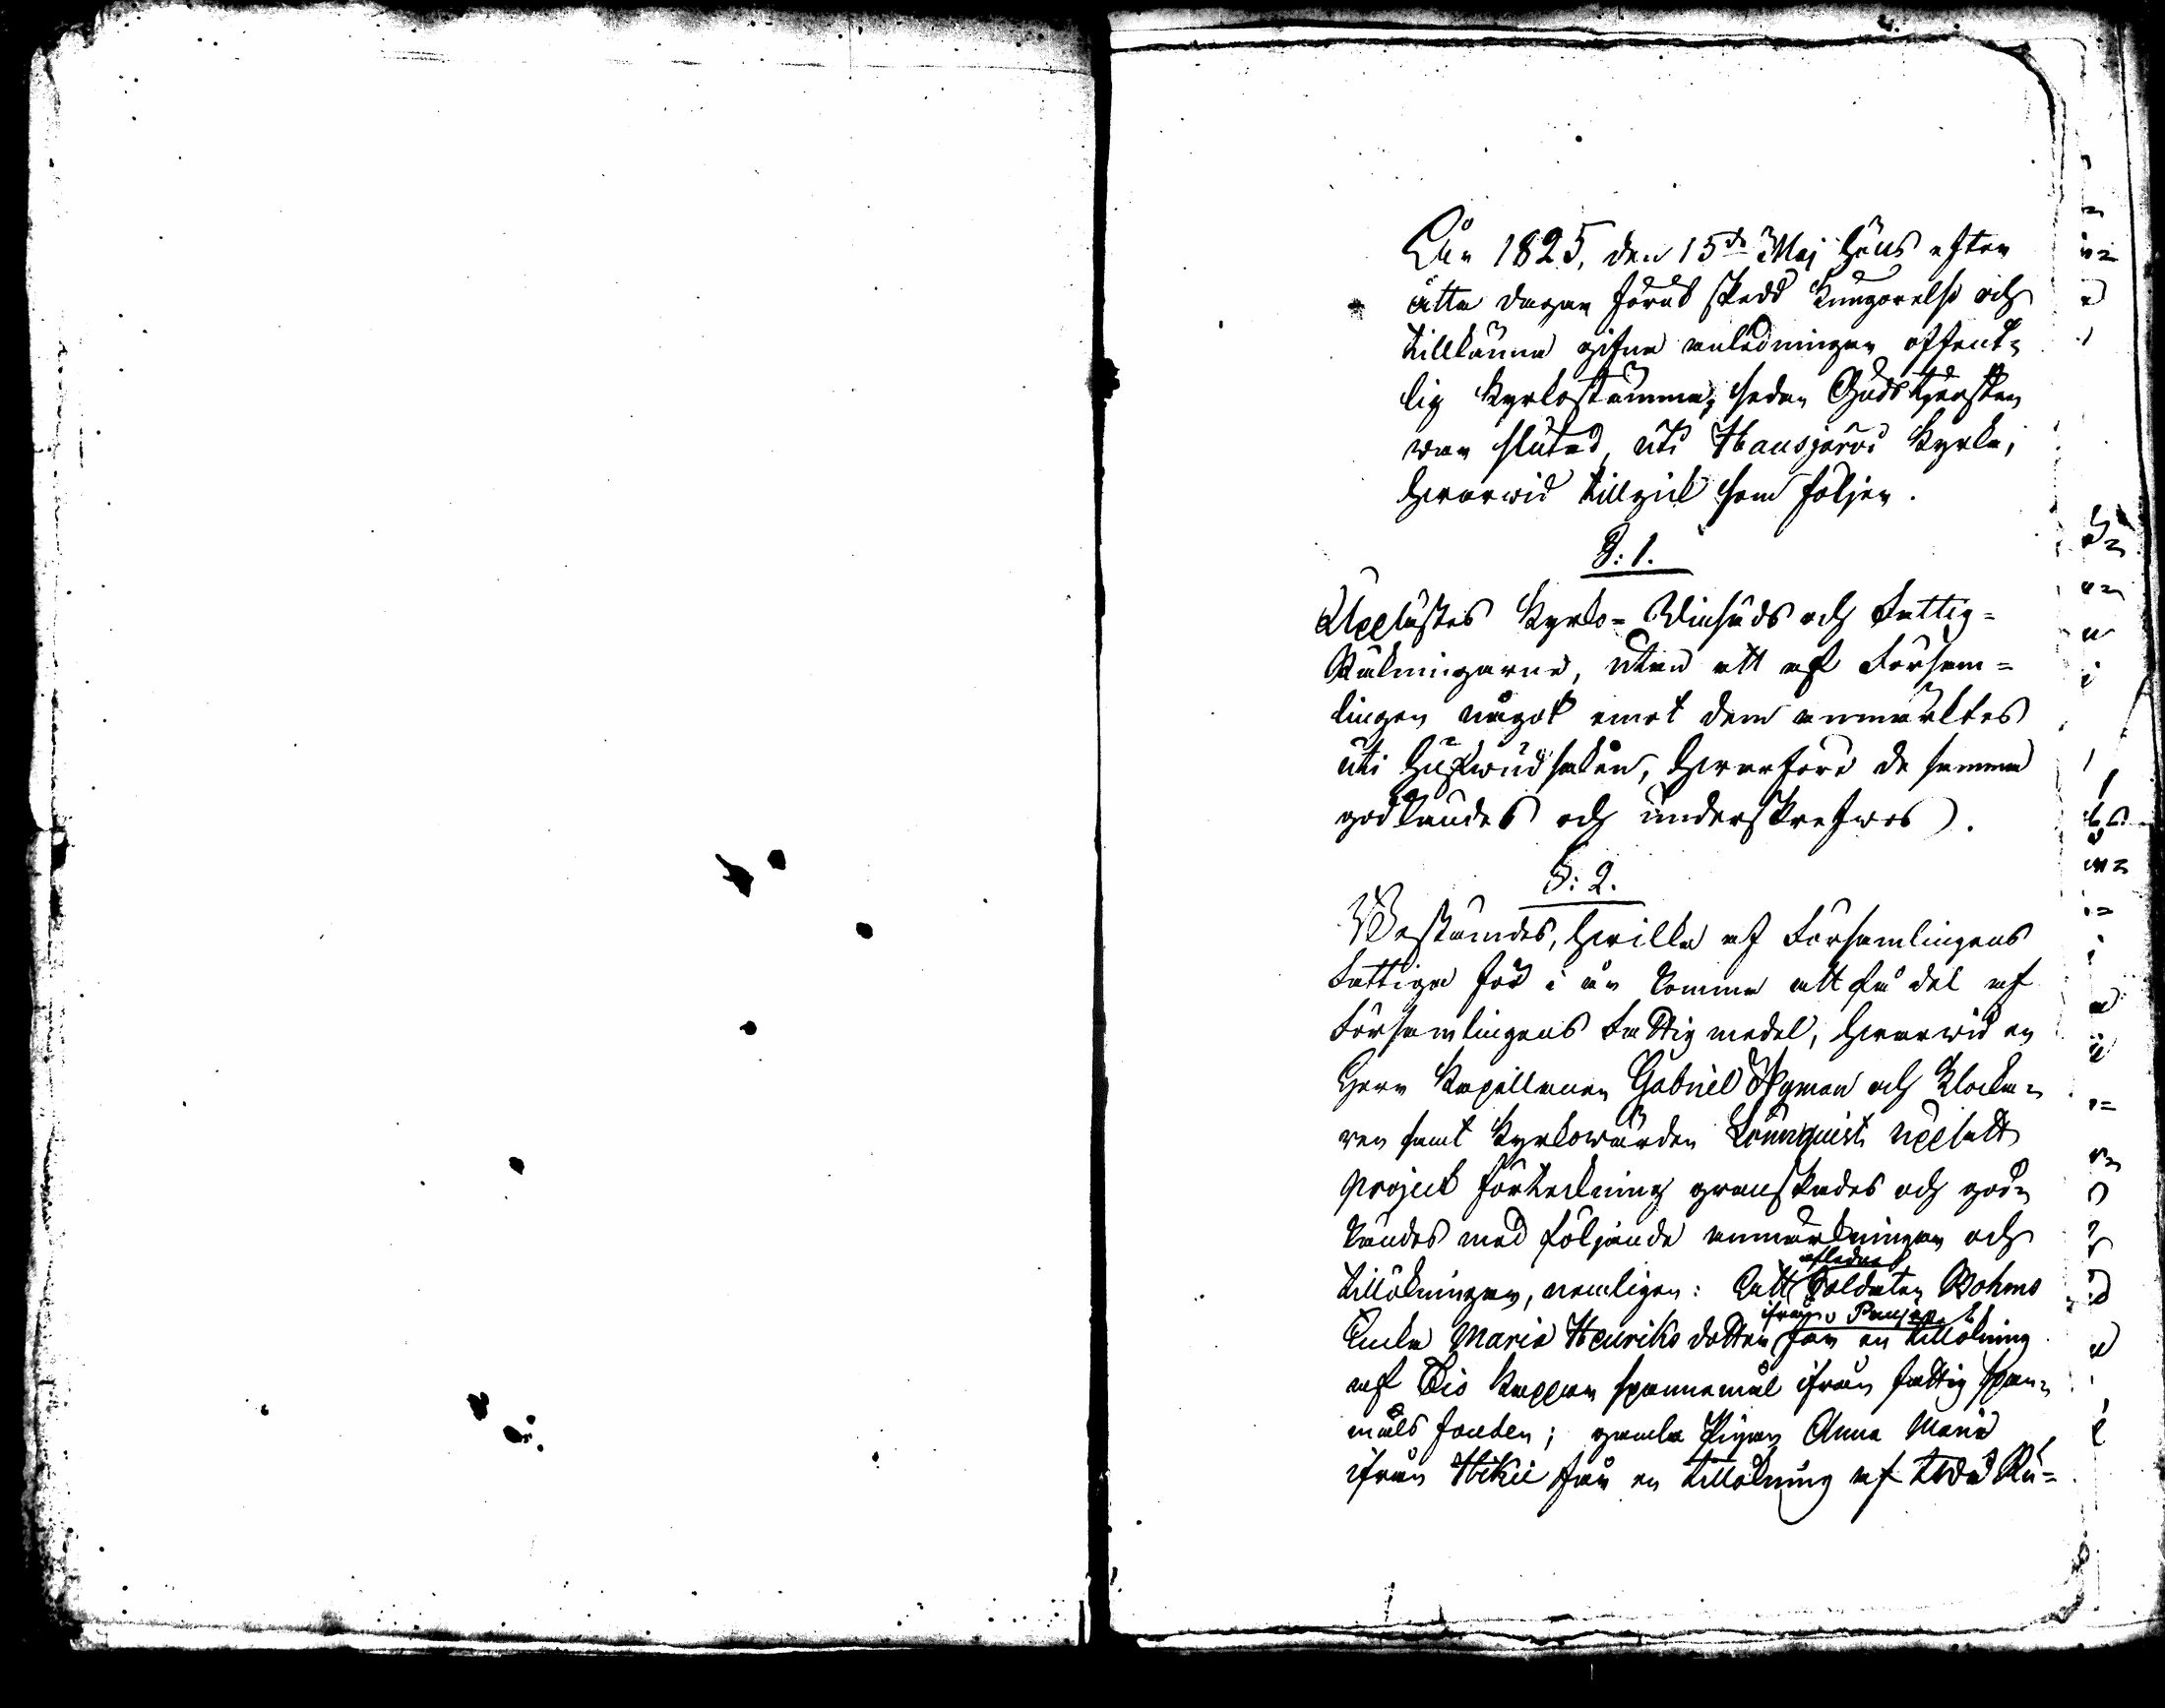 År 1825, den 15de Maj hölls efter
åtta dagar förut skedd Kungörelse och
tillkänna gifne anledningar offent=
lig Kyrkostämma, sedan Gudstjensten
war slutad, uti Hausjärvi Kyrka,
hvarwid tillgick som följer.
§: 1.
Upplästes Kyrko= Winhuds och Fattig=
Räkningarne, utan att af Försam=
lingen något emot dem anmärktes
uti hufwudsaken, hvarföre de samma
godkändes och underskrefwos.
§: 2.
Bestämdes, hvilka af Församlingens
Fattiga för i år komma att få del af
Församlingens Fattig medel, hvarwid en
Herr Kapellanen Gabriel Nyman och Klocka=
ren samt Kyrkowärden Lönnquist uppsatt
project förteckning granskades och god=
kändes med följande anmärkningar och
tillökningar, nemligen: Att aflidne Soldaten Bohms
Enka Maria Henriks dotter ifrån får en tillökning
af Tio Kappar spannemål ifrån fattig span=
måls fonden; gamla Pigan Anna Maria
ifrån Hikiä får en tillökning af två Ru=